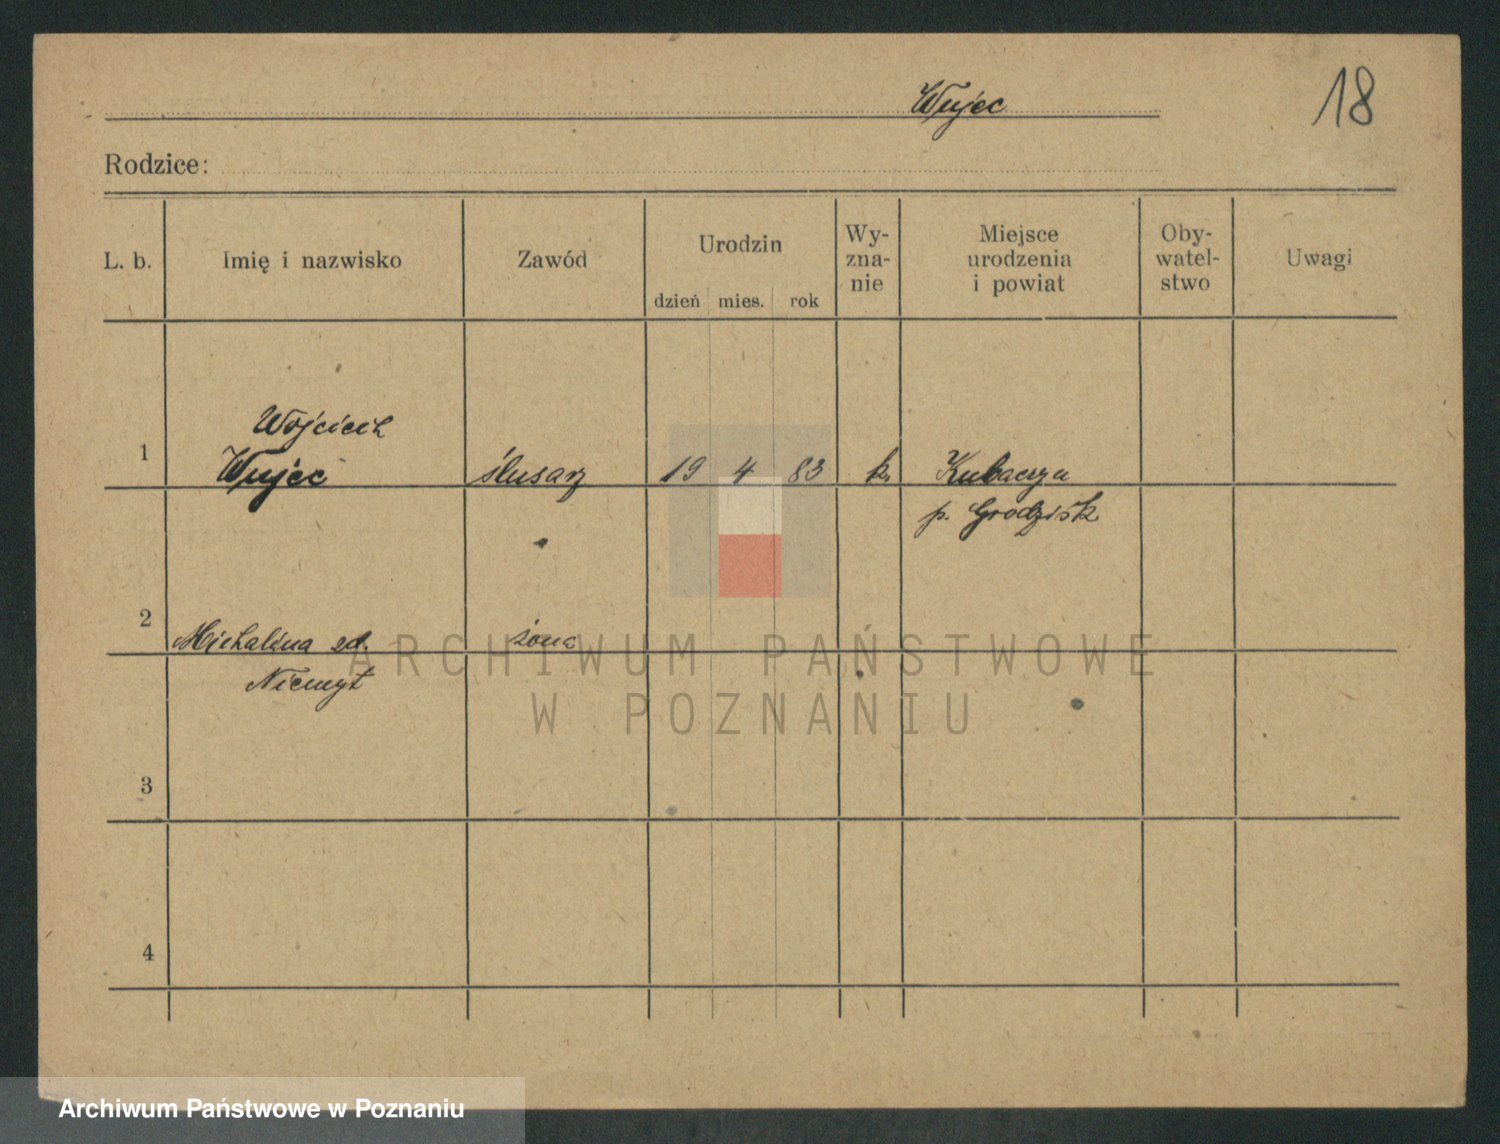 Wujec
18
Rodzice:
L. b. Imię i nazwisko Zawód Urodzin dzień mies. rok Wy-
zna-
nie Miejsce
urodzenia
i powiat Oby-
watel-
stwo Uwagi
Wojciech
1 Wujec ślusarz 19 4 83 k. Kubaczyn
p. Grodzisk
2 Michalina zd. żona
Niemyt
3
4
ARCHIWUM PAŃSTWOWE
W POZNANIU
Archiwum Państwowe w Poznaniu